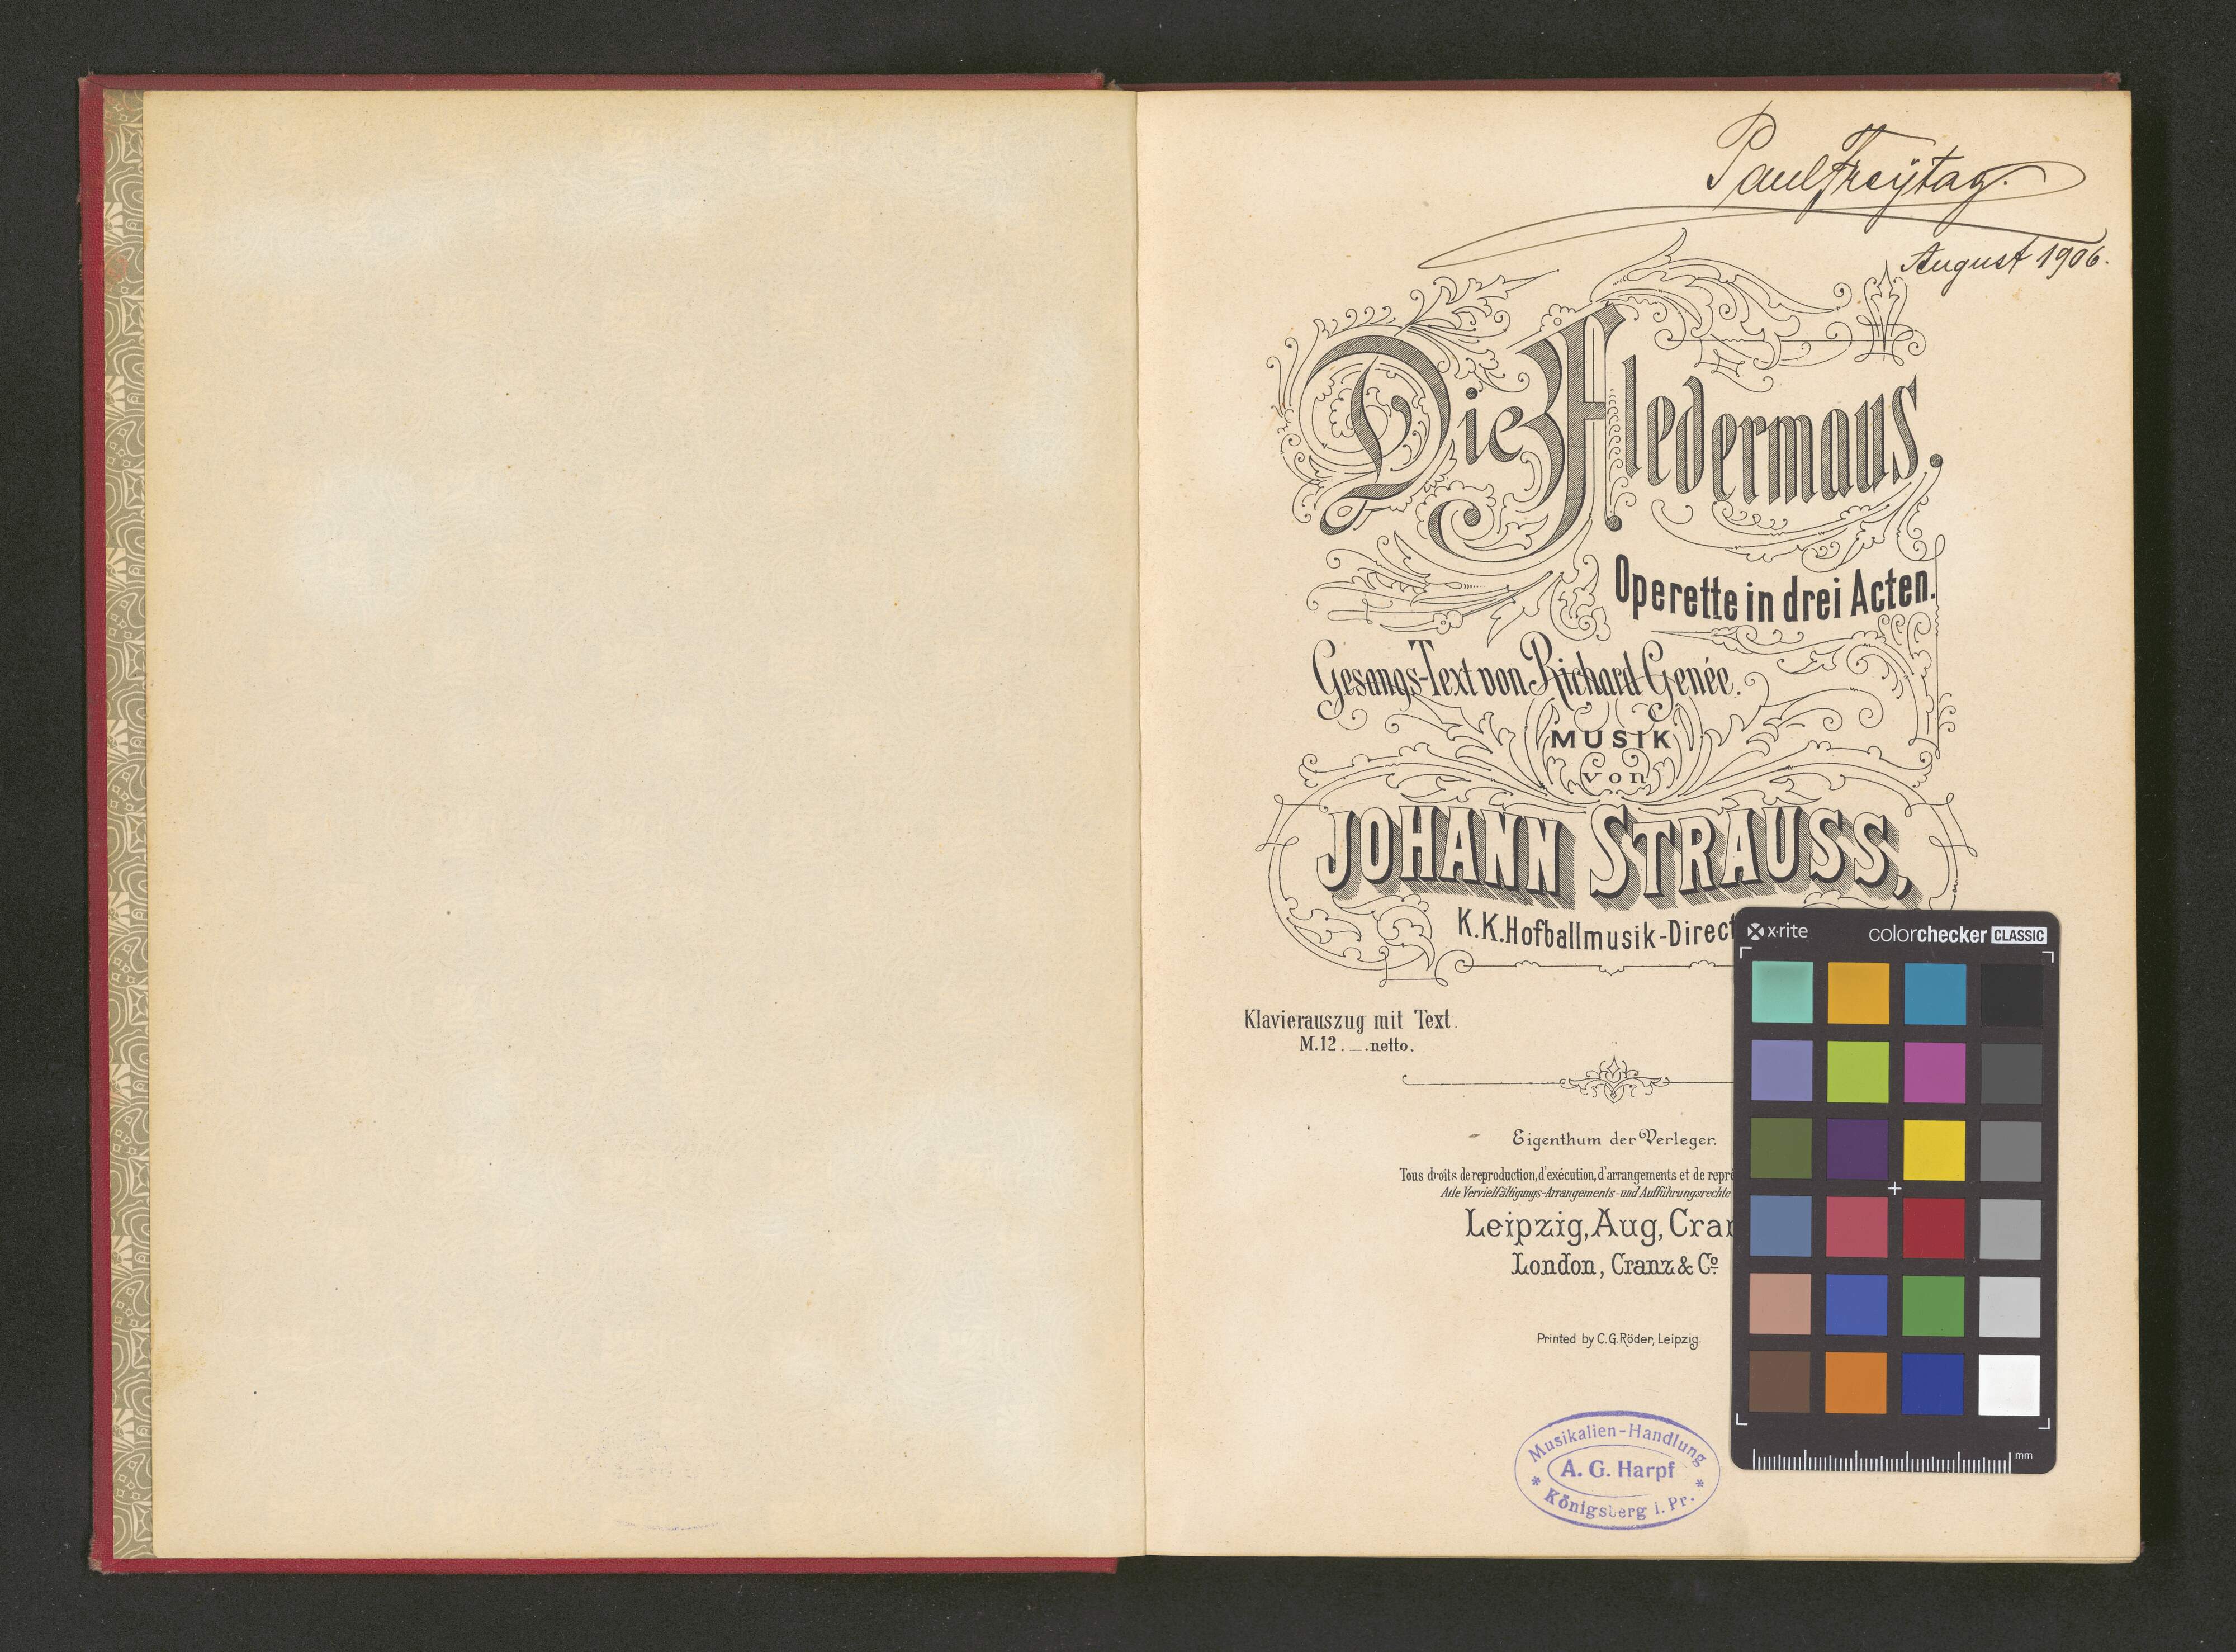 Paul Freÿtag.
August 1906.
Die Fledermaus.
Operette in drei Acten.
Gesangs-Text von Richard Genée.
MUSIK
von
JOHANN STRAUSS,
K.K. Hofballmusik-Direct
Klavierauszug mit Text.
M.12._.netto.
Eigenthum der Verleger.
Tous droits de reproduction, d'exécution, d'arrangements et de repré
Alle Vervielfältigungs-Arrangements-und Aufführungsrechte
Leipzig, Aug, Cran
London, Cranz & Co.
Printed by C.G. Röder, Leipzig.
Musikalien-Handlung
A. G. Harpf
* Königsberg i. Pr. *
x·rite colorchecker CLASSIC
mm